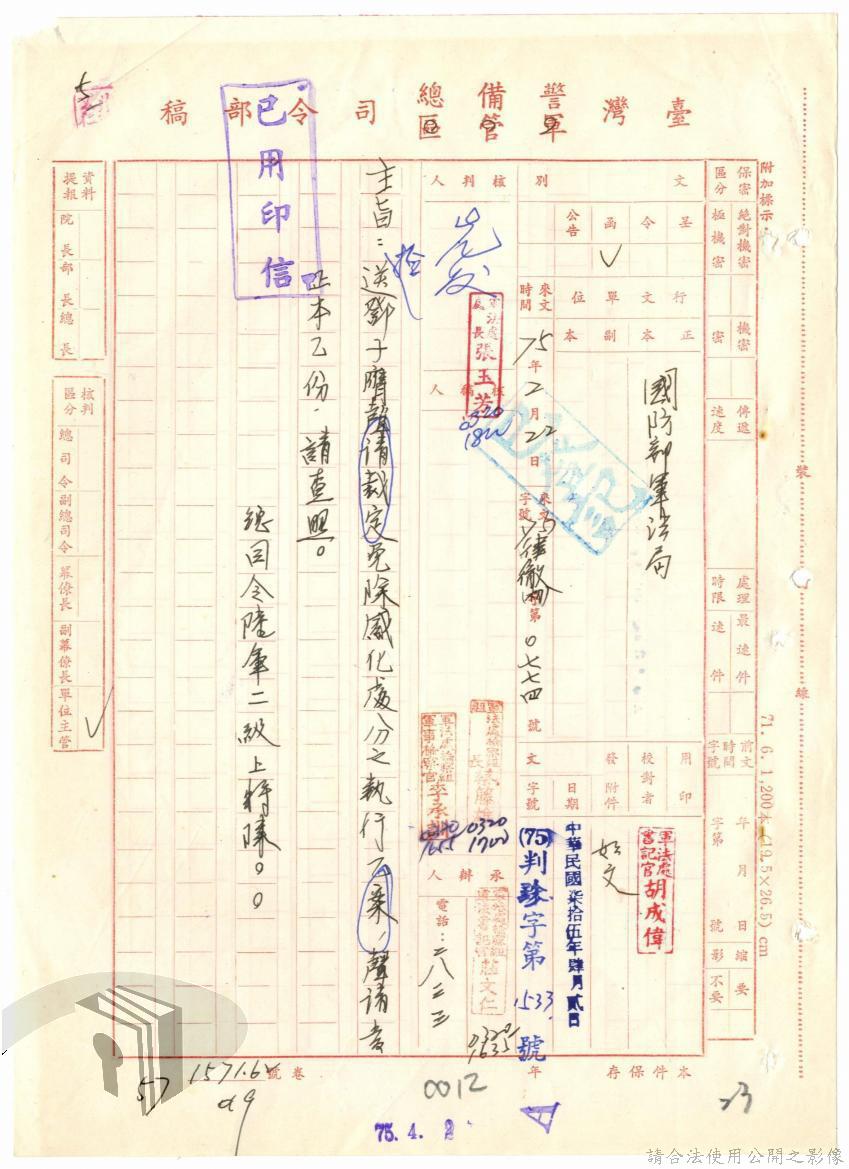 臺灣警備總司令部稿
軍管區
已用印信
附加標示
保密區分
絕對機密
極機密
機密
密
傳遞速度
處理時限
最速件
速件
前文時間字號
年 月 日
字第 號
縮影
要
不要
文別
呈
令
函
公告
行文單位
正本
副本
國防部軍法局
來文時間
75年2月22日
來文字號
字第0七七四號
用印
校對者
發文
附件
日期
字號
軍法處書記官胡成偉
如文
中華民國柒拾伍年肆月貳日
(75)判珍字第1533號
核判人
核稿人
承辦人
軍法處處長張玉芳
0320
1820
0320
1700
1655
0320
1635
電話:二八二三
主旨:檢送鄧子膺聲請裁定免除感化處分之執行乙案,聲請書
正本乙份,請查照。
總司令陸軍二級上將陳。。
資料提報
院長
部長
總長
核判區分
總司令
副總司令
幕僚長
副幕僚長
單位主管
裝
線
71. 6. 1,200本 (19.5×26.5) cm
本件保存 年
卷號
1571.6
57
0012
23
75. 4. 2
請合法使用公開之影像